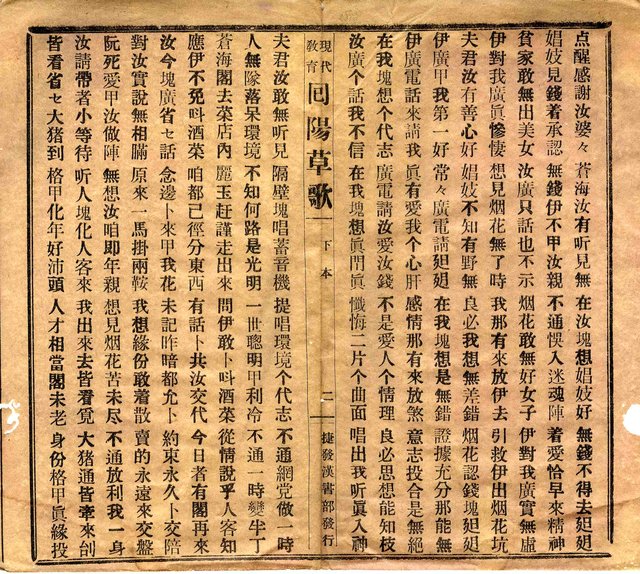 点醒感謝汝婆々 蒼海汝有听見無 在汝塊想娼妓好 無錢不得去廻廻
娼妓見錢着承認 無錢伊不甲汝親 不通悮入迷魂陣 着愛恰早來精神
貧家敢無出美女 汝廣只話也不示 烟花敢無好女子 伊對我廣實無虛
伊對我廣眞慘悽 想見烟花無了時 我那有來放伊去 引救伊出烟花坑
夫君汝有善心好 娼妓不知有野無 良必我想無差錯 烟花認錢塊廻廻
伊廣甲我第一好 常々廣電請廻廻 在我塊想是無錯 證據充分那能無
伊廣電話來請我 眞有愛我个心肝 感情那有來放煞 意志投合是無絕
在我塊想个代志 廣電請汝愛汝錢 不是愛人个情理 良必思想能知枝
汝廣个話我不信 在我塊想眞閂眞 懺悔二片个曲面 唱出我听眞入神
現代教育 回陽草歌 下本 二 捷發漢書部發行
夫君汝敢無听見 隔壁塊唱蓄音機 提唱環境个代志 不通網党做一時
人無墜落呆環境 不知何路是光明 一世聰明甲利冷 不通一時變半丁
蒼海閣去菜店內 麗玉赶謹走出來 問伊敢卜呌酒菜 從情說乎人客知
應伊不免呌酒菜 咱都已徑分東西 有話卜共汝交代 今日者有閣再來
汝今塊廣省セ話 念邊卜來甲我花 未記昨暗都允卜 約束永久卜交陪
對汝實說無相瞞 原來一馬掛兩鞍 我想緣份敢着散 賣的永遠來交盤
阮死愛甲汝做陣 無想汝咱即年親 想見烟花苦未尽 不通放利我一身
汝請帶者小等待 听人塊化人客來 我出來去皆看覓 大猪通皆牽來刣
皆看省セ大猪到 格甲化年好沛頭 人才相當閣未老 身份格甲眞緣投